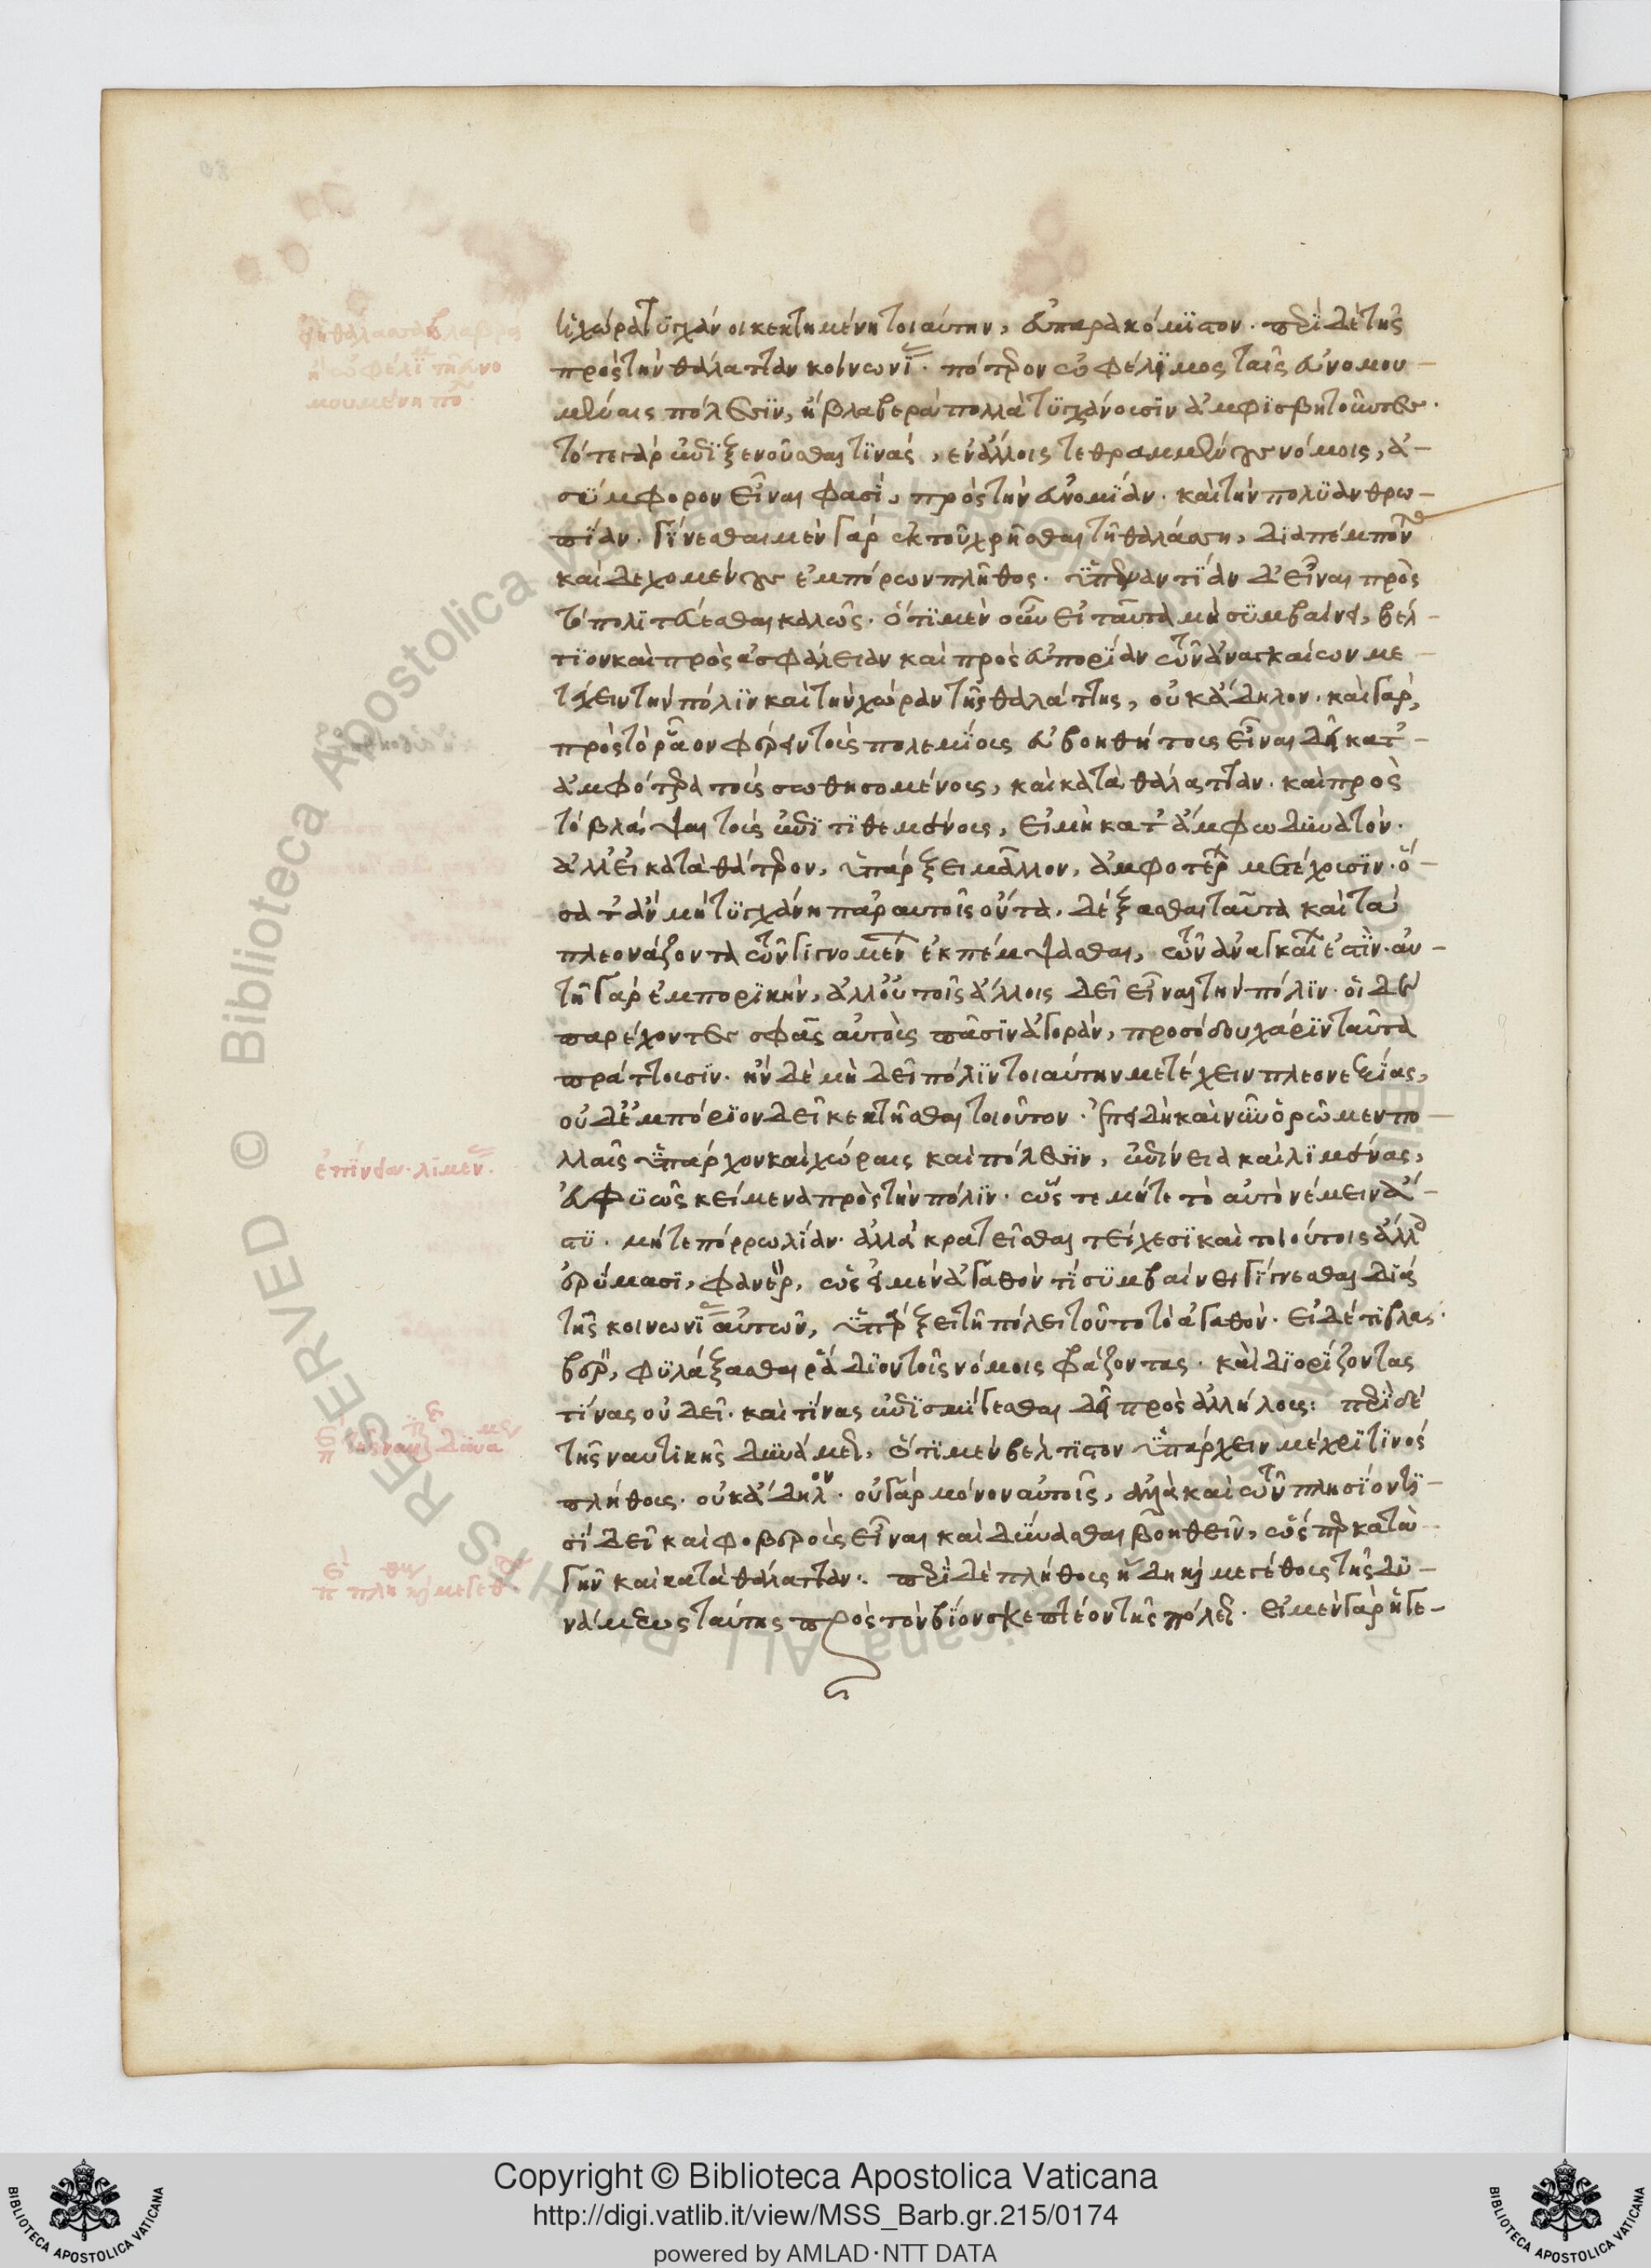 ἡ χώρα τυγχάνοι κεκτημένη τοιαύτην, εὐπαρακόμιστον. περὶ δὲ τῆς
πρὸς τὴν θάλατταν κοινωνί. πότερον ὠφέλιμος ταῖς εὐνομου-
μέναις πόλεσιν, ἢ βλαβερὰ πολλὰ τυγχάνουσιν ἀμφισβητοῦντες.
τό τε γὰρ ἐπιξενοῦσθαι τινὰς, ἐν ἄλλοις τεθραμμένους νόμοις, ἀ-
σύμφορον εἶναι φασὶ, πρὸς τὴν εὐνομίαν. καὶ τὴν πολυανθρω-
πίαν. γίνεσθαι μὲν γὰρ ἐκ τοῦ χρῆσθαι τῇ θαλάσσῃ, διαπέμποντας
καὶ δεχομένους ἐμπόρων πλῆθος. ὑπεναντίαν δ' εἶναι πρὸς
τὸ πολιτεύεσθαι καλῶς. ὅτι μὲν οὖν εἰ ταῦτα μὴ συμβαίνει, βέλ-
τιον καὶ πρὸς ἀσφάλειαν καὶ πρὸς εὐπορίαν τῶν ἀναγκαίων με-
τέχειν τὴν πόλιν καὶ τὴν χώραν τῆς θαλάττης, οὐκ ἄδηλον. καὶ γὰρ,
πρὸς τὸ ῥᾷον φέρειν τοὺς πολεμίους εὐβοηθήτους εἶναι δεῖ κατ'-
ἀμφότερα τοὺς σωθησομένους, καὶ κατὰ θάλατταν. καὶ πρὸς
τὸ βλάψαι τοὺς ἐπιτιθεμένους, εἰ μὴ κατ' ἄμφω δυνατόν.
ἀλλ' εἰ κατὰ θάτερον, ὑπάρξει μᾶλλον, ἀμφοτέρων μετέχουσιν. ὅ-
σα τ' ἂν μὴ τυγχάνῃ παρ' αὐτοῖς ὄντα. δέξασθαι ταῦτα καὶ τὰ
πλεονάζοντα τῶν γιγνομένων ἐκπέμψασθαι, τῶν ἀναγκαίων ἐστίν. αὐ-
τῇ γὰρ ἐμπορικὴν, ἀλλ' οὐ τοῖς ἄλλοις δεῖ εἶναι τὴν πόλιν. οἱ δὲ
παρέχοντες σφᾶς αὐτοὺς πᾶσιν ἀγορὰν, προσόδου χάριν ταῦτα
πράττουσιν. ἣν δὲ μὴ δεῖ πόλιν τοιαύτην μετέχειν πλεονεξίας,
οὐδ' ἐμπόριον δεῖ κεκτῆσθαι τοιοῦτον. ἐπεὶ δὴ καὶ νῦν ὁρῶμεν πο-
λλαῖς ὑπάρχον καὶ χώραις καὶ πόλεσιν, ἐπίνεια καὶ λιμένας,
εὐφυῶς κείμενα πρὸς τὴν πόλιν. ὥστε μήτε τὸ αὐτὸ νέμειν ἄ-
στυ. μήτε πόρρω λίαν. ἀλλὰ κρατεῖσθαι τείχεσι καὶ τοιούτοις ἄλλοις
ἐρύμασι, φανερ, ὡς εἰ μὲν ἀγαθόν τι συμβαίνει γίγνεσθαι διὰ
τῆς κοινωνίας αὐτῶν, ὑπάρξει τῇ πόλει τοῦτο τὸ ἀγαθόν. εἰ δέ τι βλα-
βερ, φυλάξασθαι ῥᾴδιον τοῖς νόμοις φράζοντας. καὶ διορίζοντας
τίνας οὐ δεῖ. καὶ τίνας ἐπιμίσγεσθαι δεῖ πρὸς ἀλλήλους: περὶ δὲ
τῆς ναυτικῆς δυνάμεως, ὅτι μὲν βέλτιστον ὑπάρχειν μέχρι τινὸς
πλήθους. οὐκ ἄδηλον. οὐ γὰρ μόνον αὐτοῖς, ἀλλὰ καὶ τῶν πλησίον τι-
σὶ δεῖ καὶ φοβεροὺς εἶναι καὶ δύνασθαι βοηθεῖν, ὥσπερ κατὰ
γῆν καὶ κατὰ θάλατταν. περὶ δὲ πλήθους ἤδη καὶ μεγέθους τῆς δυ-
νάμεως ταύτης πρὸς τὸν βίον σκεπτέον τῆς πόλεως. εἰ μὲν γὰρ ἡγε-
ἐπίνειον. λιμεν.